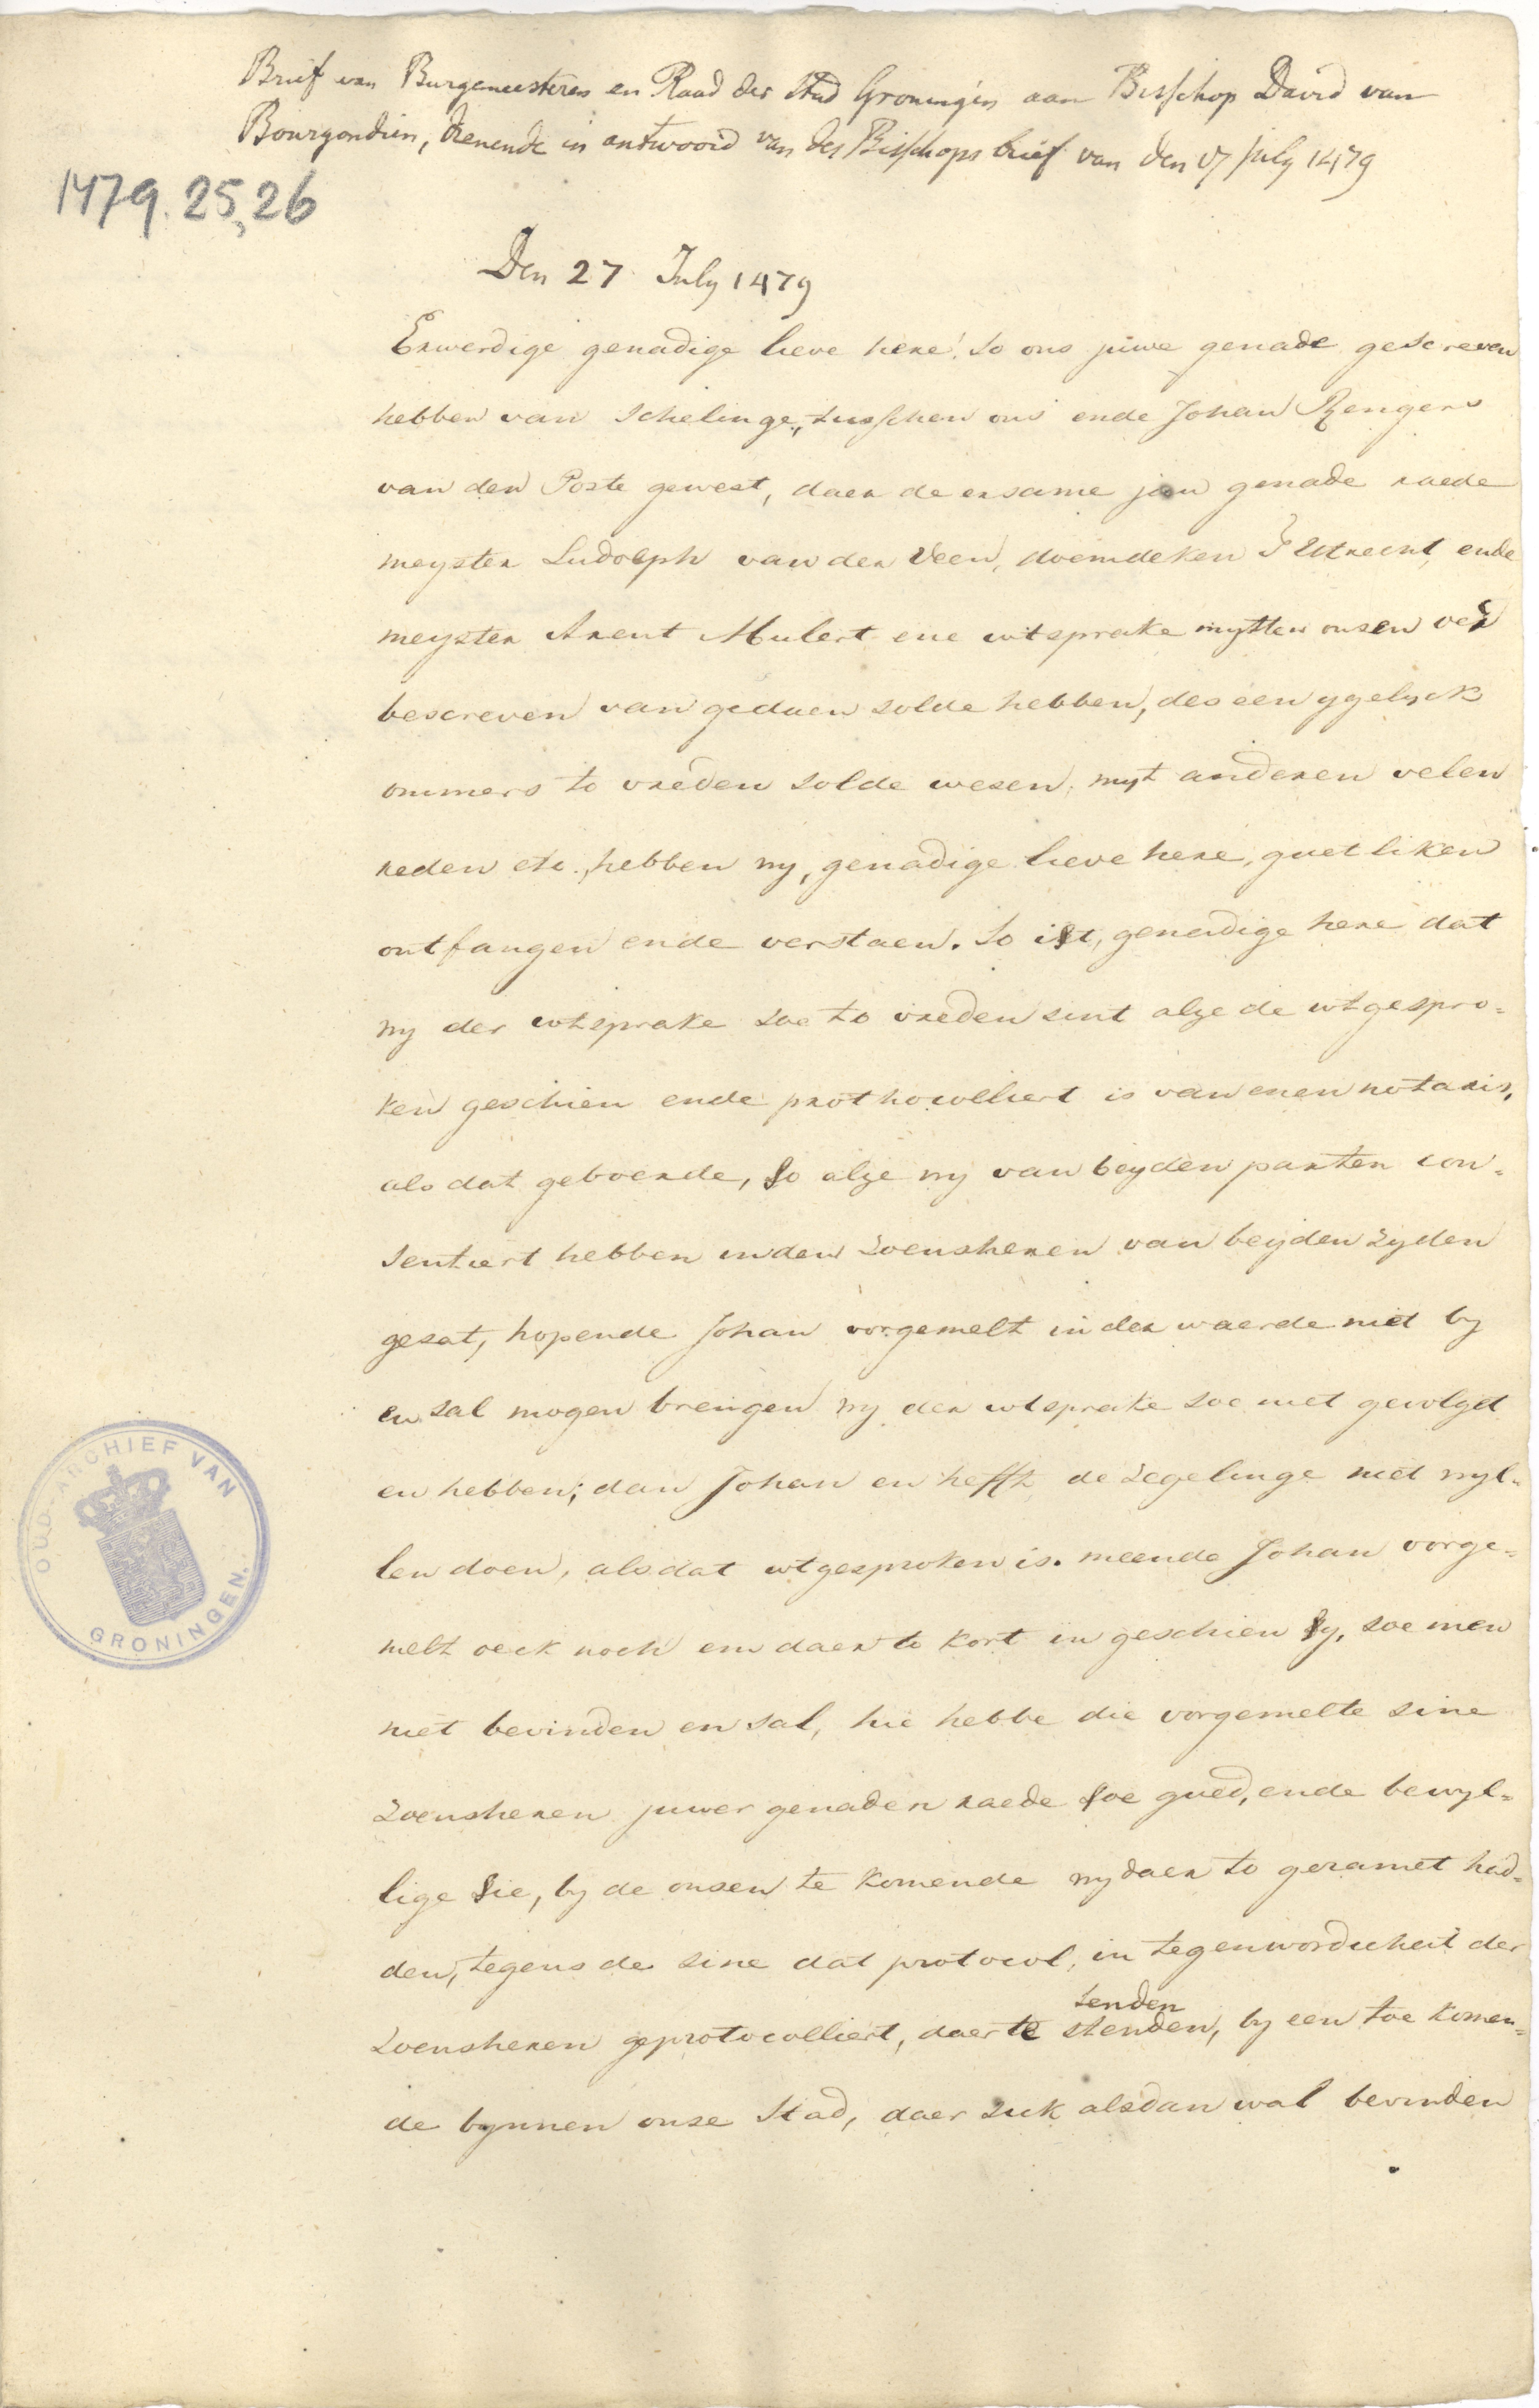 Brief van Burgemeesteren en Raad der Stad Groningen aan Bisschop David van
Bourgondien, dienende in antwoord van des Bisschops brief van den 17 July 1479
1479. 25, 26
Den 27 July 1479
Erwerdige genadige lieve here! So ons juwe genade gescreven
hebben van schelinge, tusschen ons ende Johan Rengers
van den Poste gewest, daer de ersame juw genade raede
meyster Ludolph van der Veen, doemdeken T Utrecht, ende
meyster Arent Mulert ene utsprake mytten onsen vers
bescreven van gedaen solde hebben, des een ygelyck
ommers to vreden solde wesen, myt anderen velen
reden etc., hebben wy, genadige lieve here, guetliken
ontfangen ende verstaen. So ist, genadige here dat
wy der utsprake soe to vreden sint alze de utgespro-
ken geschien ende prothocolliert is van enen notaris,
als dat geboerde, so alze wy van beyden parten con-
sentiert hebben in den zoensheren van beyden zyden
gesat, hopende Johan vorgemelt in der waerde niet by
en sal mogen brengen wy der utsprake soe niet gevolget
en hebben; dan Johan en hefft de zegelinge niet wyl-
len doen, als dat utgesproken is. meende Johan vorge-
melt oeck noch em daer to kort in geschien sy, soe men
niet bevinden en sal, hie hebbe die vorgemelte sine
zoensheren juwer genaden raede soe gued, ende bewyl-
lige sie, by de onsen te komende wy daer to geramet had-
den, tegens de sine dat protocol, in tegenwordicheit der
zoensheren geprotocolliert, daer te stenden, by een toe komen-
senden
de bynnen onse Stad, daer zick alsdan wal bevinden
OUD-ARCHIEF VAN
GRONINGEN.